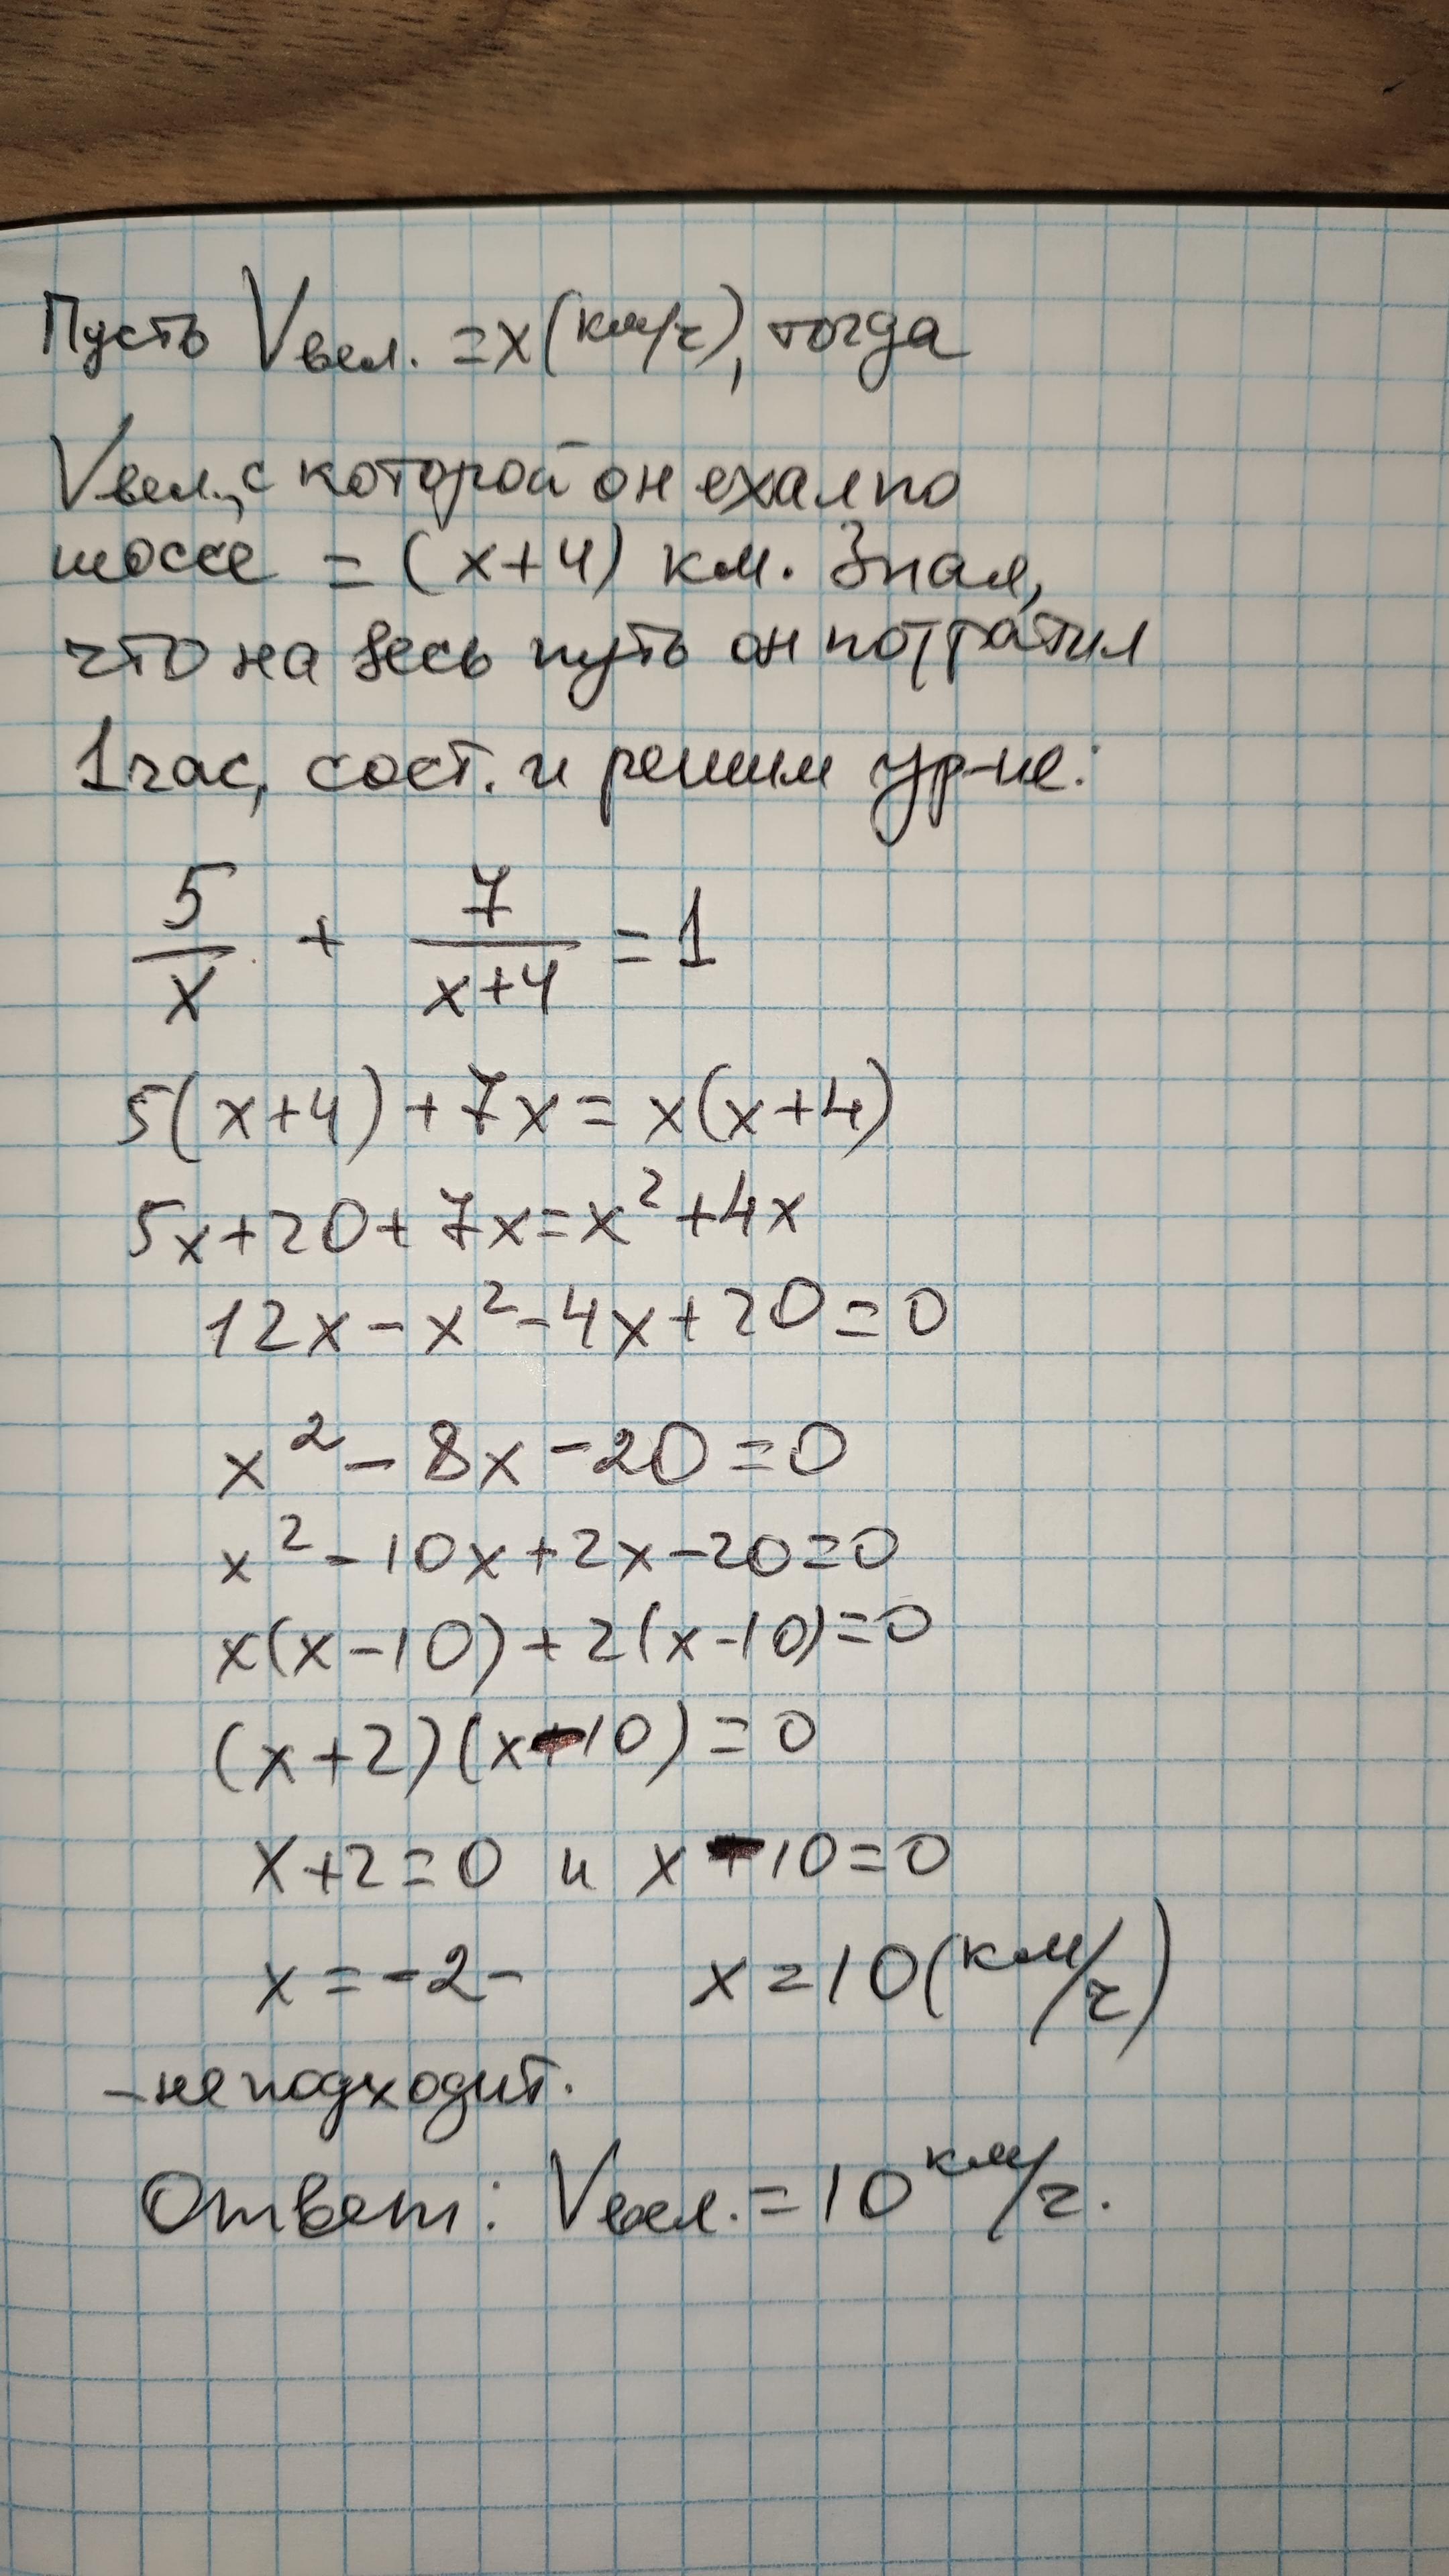 Пусть Vвел. = x (км/ч), тогда
Vвел., с которой он ехал по
шоссе = (x+4) км. Зная,
что на весь путь он потратил
1 час, сост. и решим ур-ие:
5/x + 7/(x+4) = 1
5(x+4)+7x=x(x+4)
5x+20+7x=x²+4x
12x-x²-4x+20=0
x²-8x-20=0
x²-10x+2x-20=0
x(x-10)+2(x-10)=0
(x+2)(x-10)=0
x+2=0 и x-10=0
x=-2- x=10(км/ч)
-не подходит.
Ответ: Vвел.=10 км/ч.